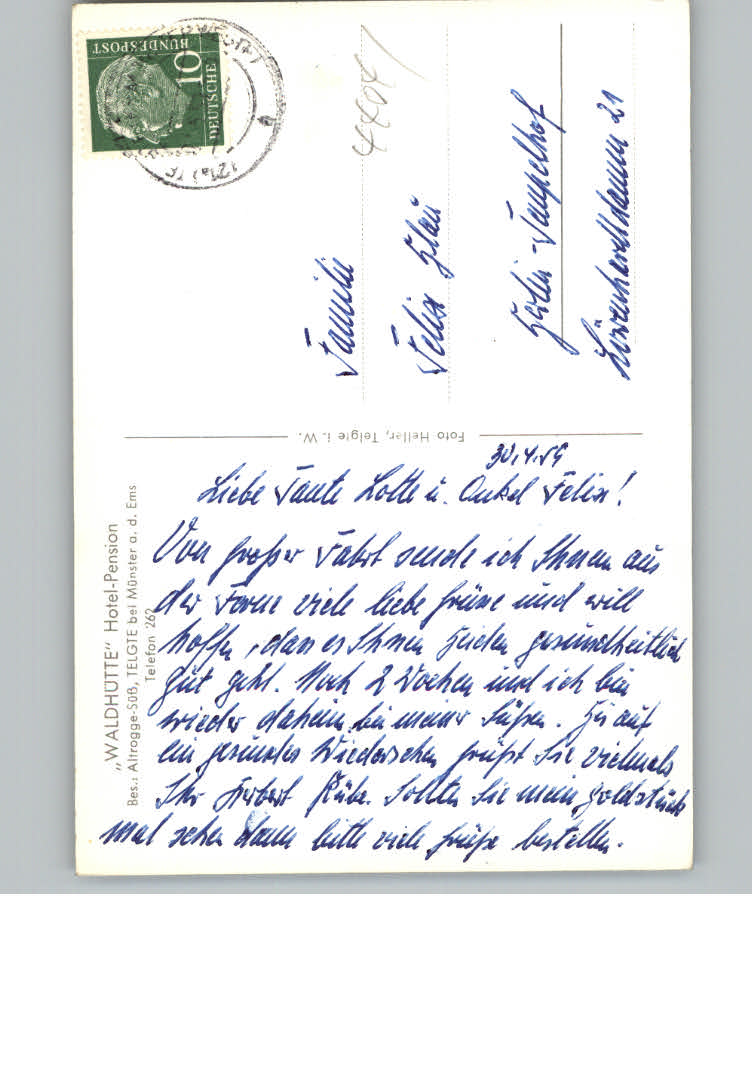 DEUTSCHE
BUNDESPOST
10
4404/
Familie
Felix Glau
Berlin-Tempelhof
Löwenhardtdamm 21
Foto Heller, Telgte i. W.
„WALDHÜTTE" Hotel-Pension
Bes.: Altrogge-Süß, TELGTE bei Münster a. d. Ems
Telefon 262
30.4.59
Liebe Tante Lotte u. Onkel Felix!
Von großer Fahrt sende ich Ihnen aus
der Ferne viele liebe Grüsse und will
hoffen, dass es Ihnen beiden gesundheitlich
gut geht. Noch 2 Wochen und ich bin
wieder daheim bei meiner Süßen. Bis auf
ein gesundes Wiedersehen grüßt Sie vielmals
Ihr Herbert Kube. Sollten Sie mein Goldstück
mal sehen dann bitte viele Grüße bestellen.